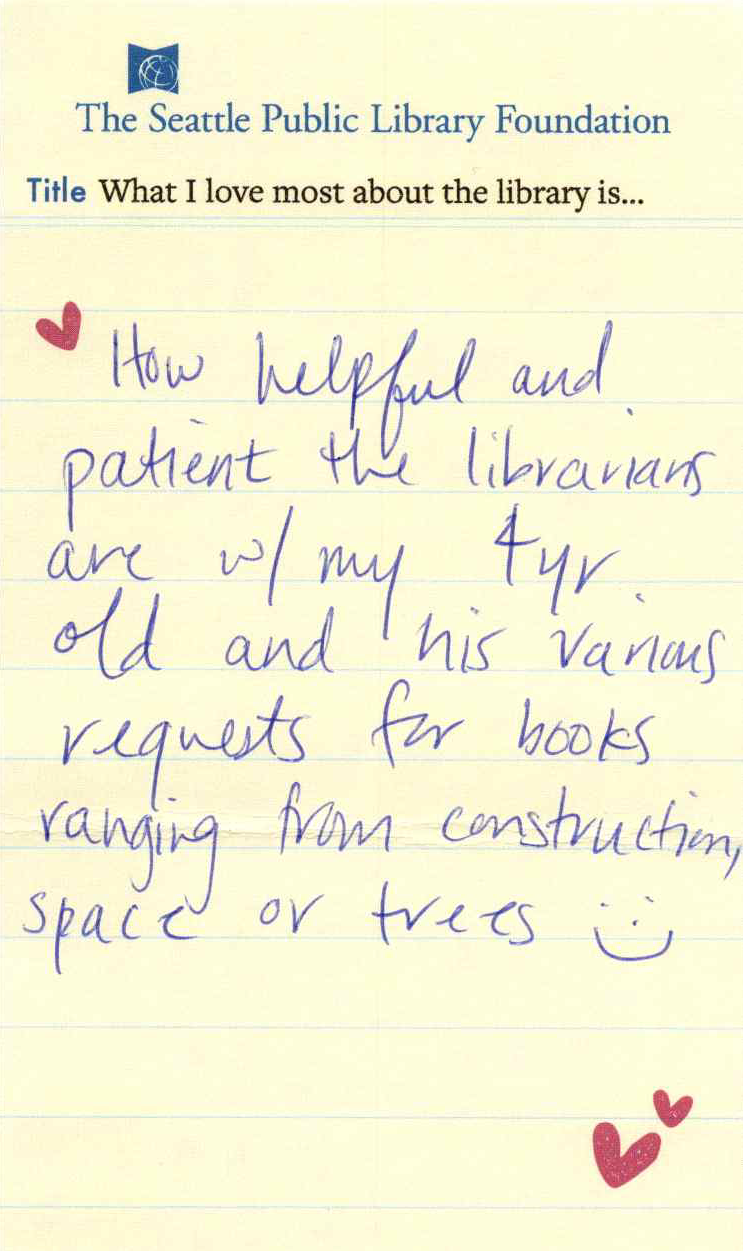 The Seattle Public Library Foundation
Title What I love most about the library is...
How helpful and
patient the librarians
are w/ my 4yr
old and his various
requests for books
ranging from construction,
space or trees :)